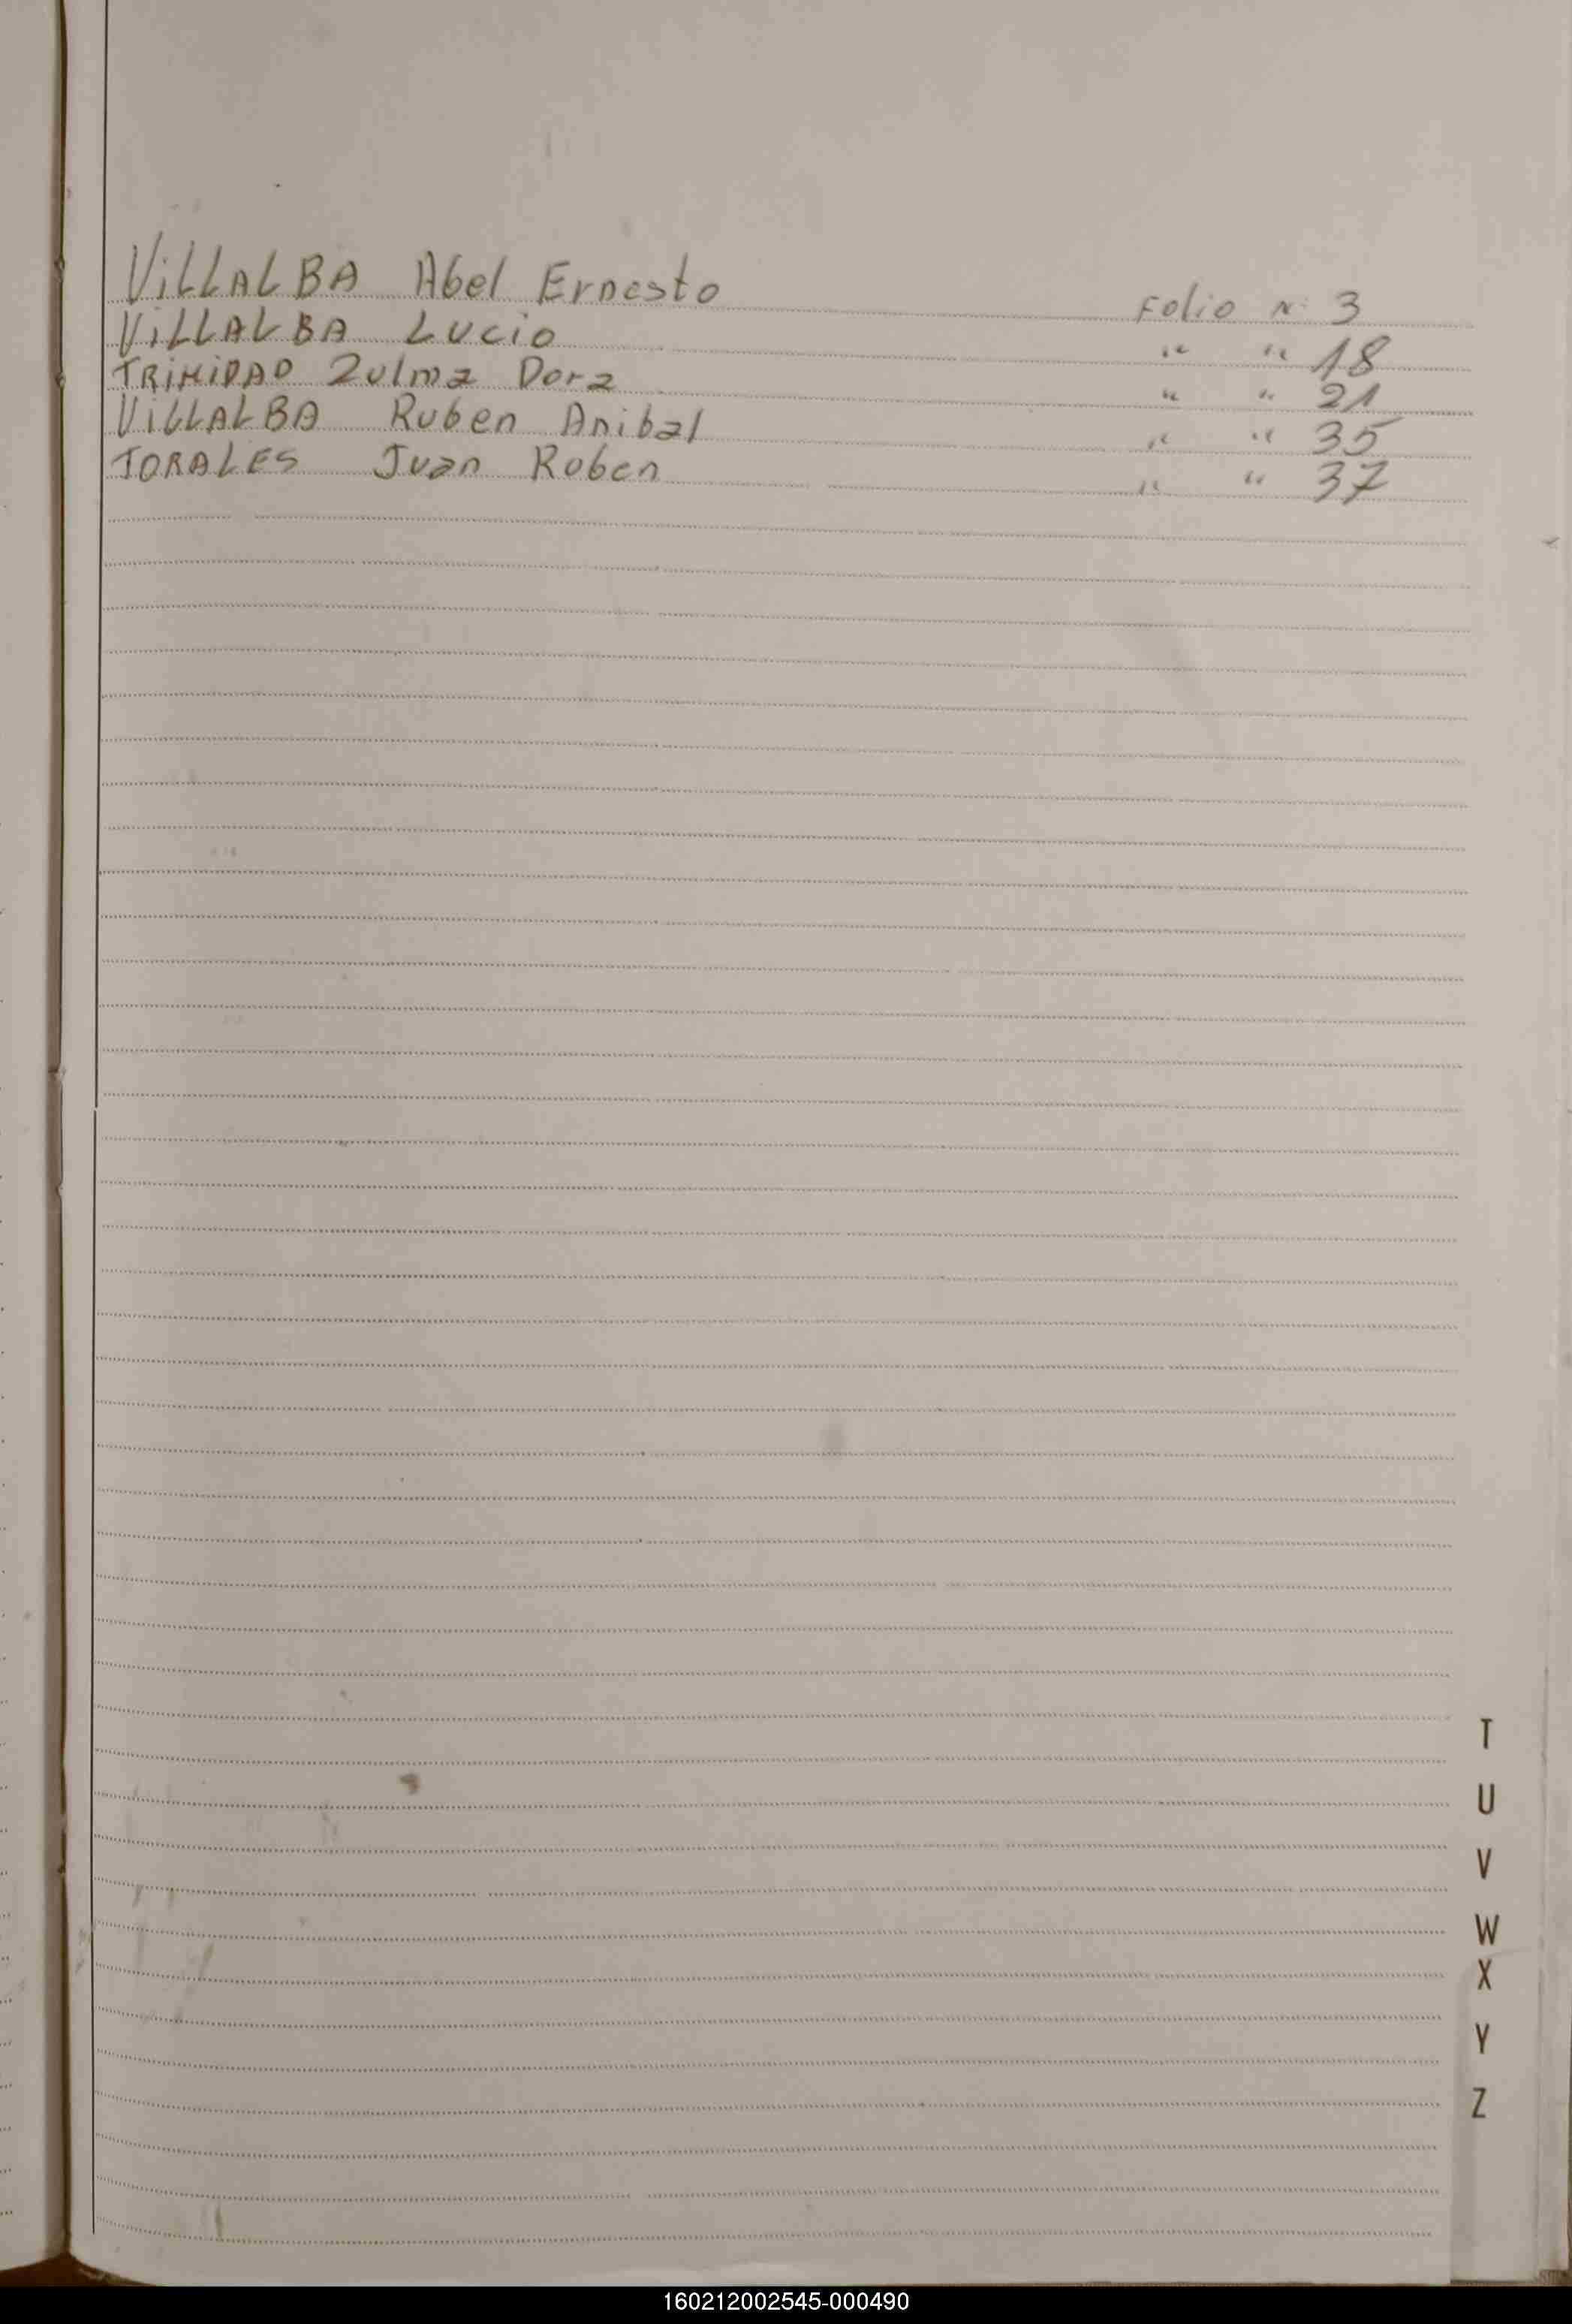 ViLLALBA Abel Ernesto Folio N: 3
ViLLALBA Lucio " " 18
TRiNiDAD Zulma Dora " " 21
ViLLALBA Ruben Anibal " " 35
TORALES Juan Ruben " " 37
T
U
V
W
X
Y
Z
160212002545-000490